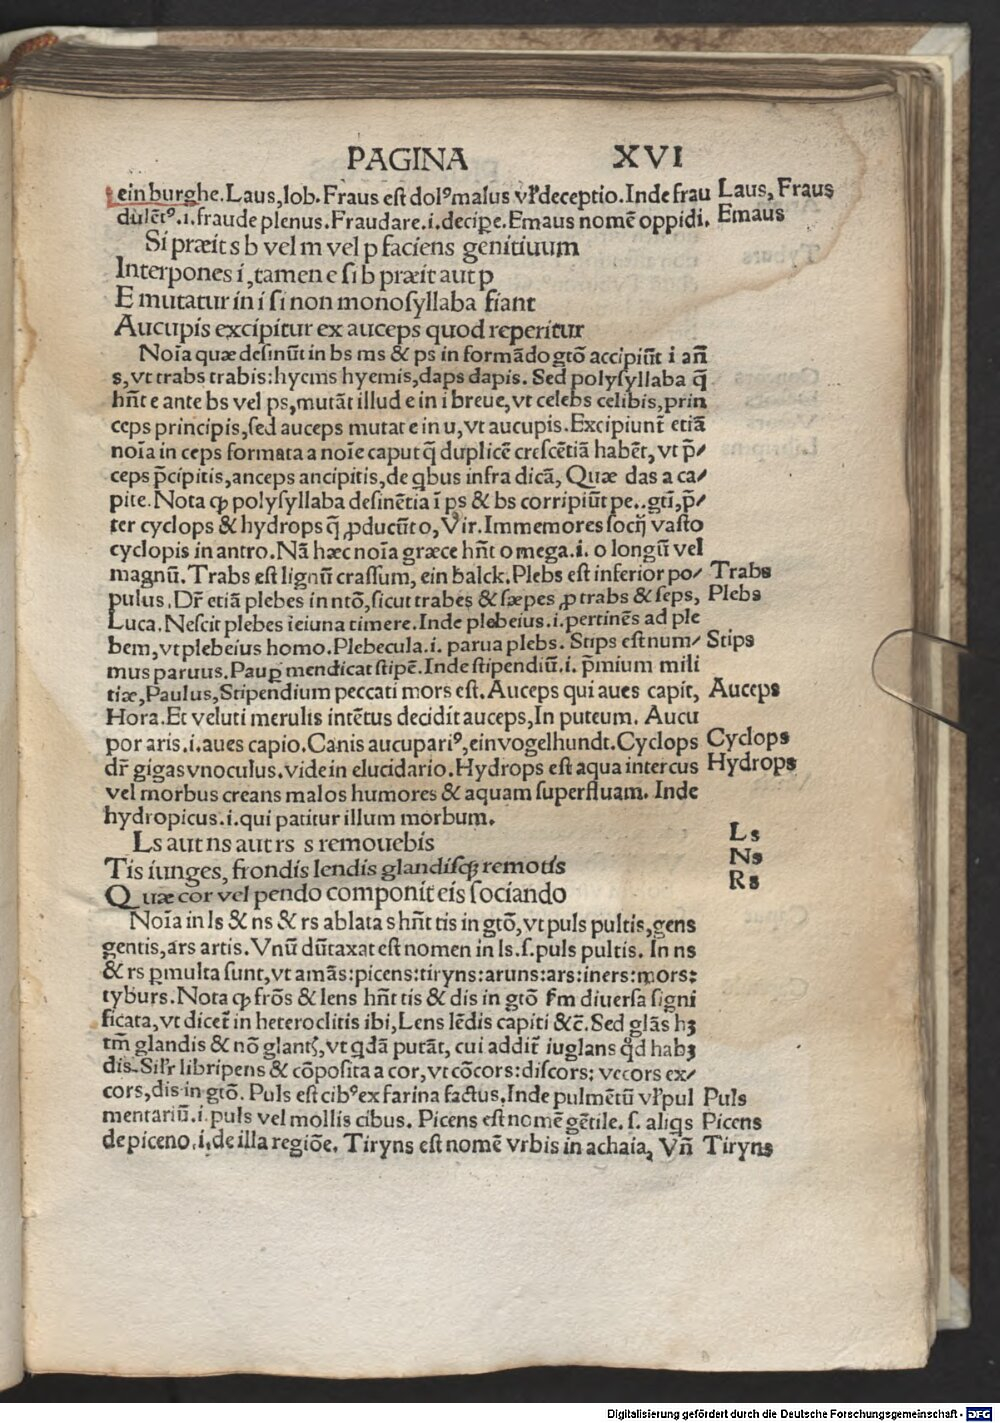 PAGINA XVI
ein burghe. Laus, lob. Fraus est dolꝰ malus vł deceptio. Inde frau Laus, Fraus
dulẽtꝰ .i. fraude plenus. Fraudare .i. decipe. Emaus nomẽ oppidi. Emaus
Si præit s b vel m vel p faciens genitiuum
Interpones i, tamen e si b præit aut p
E mutatur in i si non monosyllaba fiant
Aucupis excipitur ex auceps quod reperitur
Noĩa quæ desinũt in bs ms & ps in formãdo gtõ accipiũt i añ
s, vt trabs trabis: hyems hyemis, daps dapis. Sed polysyllaba q̃
hñt e ante bs vel ps, mutãt illud e in i breue, vt celebs celibis, prin
ceps principis, sed auceps mutat e in u, vt aucupis. Excipiunt̃ etiã
noĩa in ceps formata a noĩe caput q̃ duplicẽ crescẽtiã habẽt, vt p̃/
ceps p̃cipitis, anceps ancipitis, de qbus infra dicã, Quæ das a ca/
pite. Nota ꝙ polysyllaba desinẽtia ĩ ps & bs corripiũt pe.. gtĩ, p̃/
ter cyclops & hydrops q̃ ꝓducũt o, Vir. Immemores socij vasto
cyclopis in antro. Nã hæc noĩa græce hñt o mega .i. o longũ vel
magnũ. Trabs est lignũ crassum, ein balck. Plebs est inferior po/ Trabs
pulus. Dr̃ etiã plebes in ntõ, sicut trabes & sæpes ꝓ trabs & seps, Plebs
Luca. Nescit plebes ieiuna timere. Inde plebeius .i. pertinẽs ad ple
bem, vt plebeius homo. Plebecula .i. parua plebs. Stips est num/ Stips
mus paruus. Paup̱ mendicat stipẽ. Inde stipendiũ .i. p̃mium mili
tiæ, Paulus, Stipendium peccati mors est. Auceps qui aues capit, Auceps
Hora. Et veluti merulis intẽtus decidit auceps, In puteum. Aucu
por aris .i. aues capio. Canis aucupariꝰ, ein vogelhundt. Cyclops Cyclops
dr̃ gigas vnoculus. vide in elucidario. Hydrops est aqua intercus Hydrops
vel morbus creans malos humores & aquam superfluam. Inde
hydropicus .i. qui patitur illum morbum.
Ls aut ns aut rs s remouebis Ls
Tis iunges, frondis lendis glandisq̃ remotis Ns
Quæ cor vel pendo componit eis sociando Rs
Noĩa in ls & ns & rs ablata s hñt tis in gtõ, vt puls pultis, gens
gentis, ars artis. Vnũ dũtaxat est nomen in ls. s. puls pultis. In ns
& rs ꝑmulta sunt, vt amãs: picens: tiryns: aruns: ars: iners: mors:
tyburs. Nota ꝙ frõs & lens hñt tis & dis in gtõ fm diuersa signi
ficata, vt dicet̃ in heteroclitis ibi, Lens lẽdis capiti &c̃. Sed glãs hꝫ
tm̃ glandis & nõ glantꝭ, vt qdã putãt, cui addit̃ iuglans qd̃ habꝫ
dis. Sil̃r libripens & cõposita a cor, vt cõcors: discors: vecors ex/
cors, dis in gtõ. Puls est cibꝰ ex farina factus, Inde pulmẽtũ vł pul Puls
mentariũ .i. puls vel mollis cibus. Picens est nomẽ gẽtile. s. aliqs Picens
de piceno .i. de illa regiõe. Tiryns est nomẽ vrbis in achaia, Vñ Tiryns
Digitalisierung gefördert durch die Deutsche Forschungsgemeinschaft - DFG